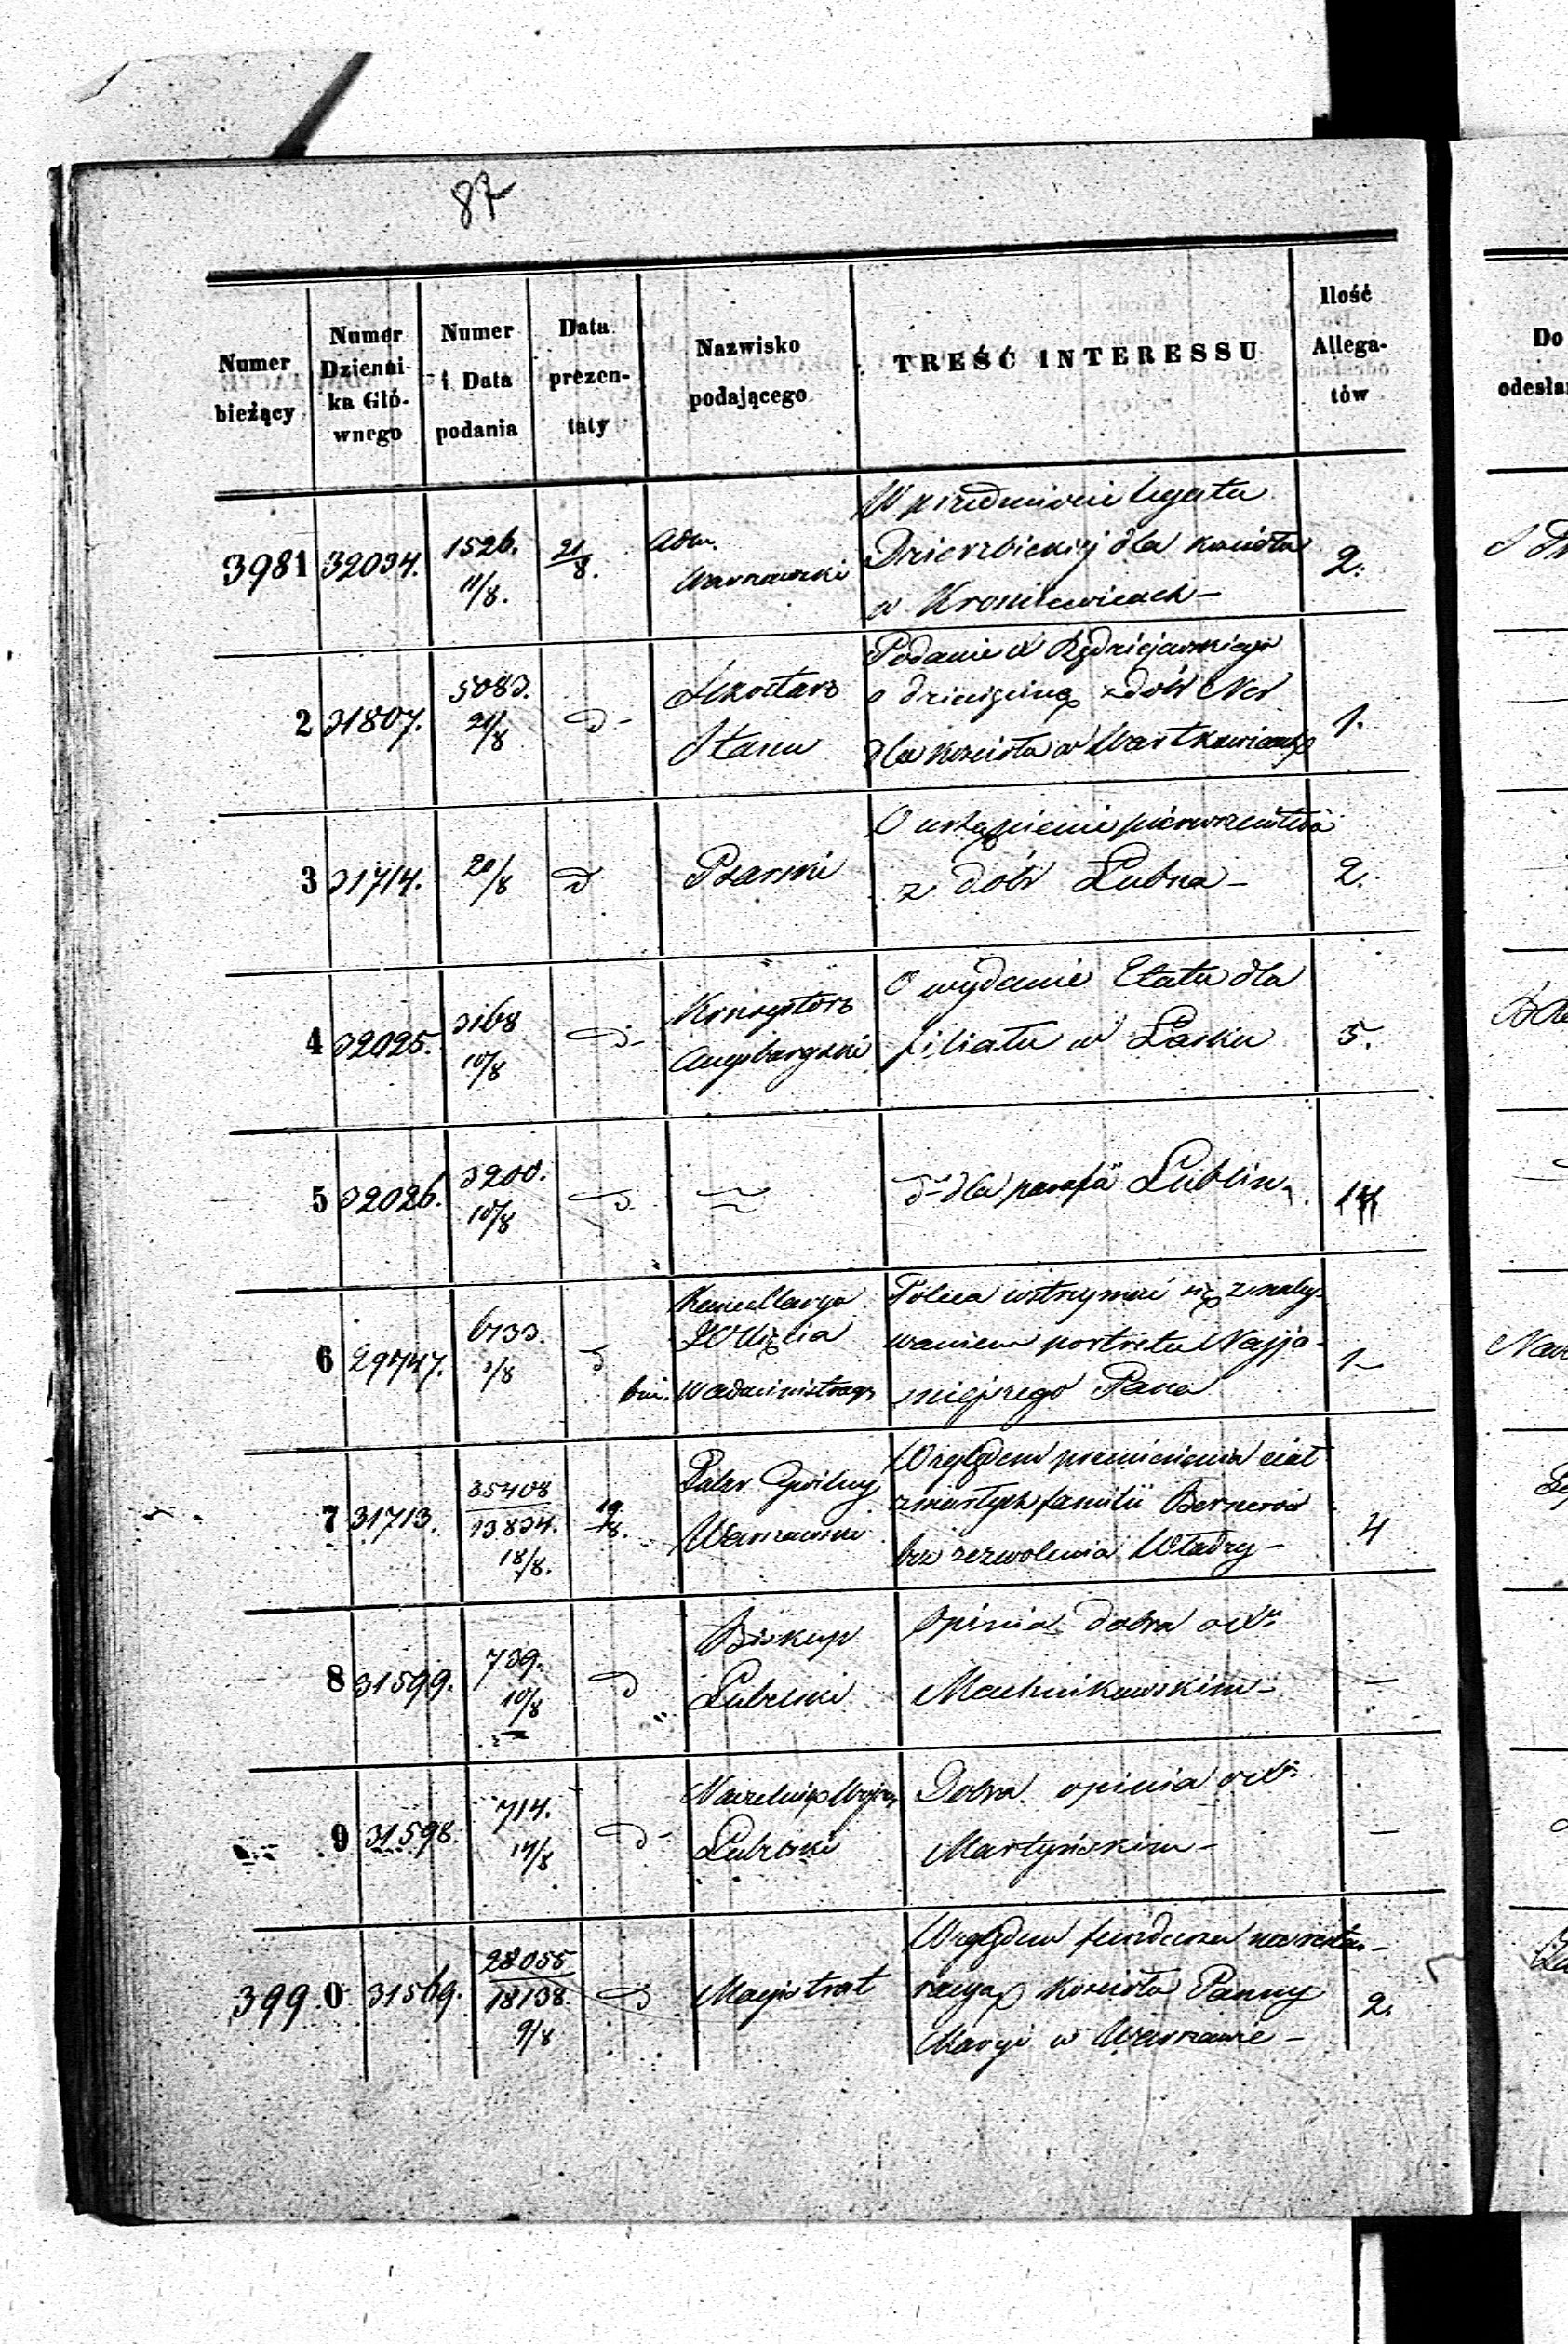 87
Numer bieżący
Numer Dzienni-ka Głó-wnego
Numer i Data podania
Data prezen-taty
Nazwisko podającego
TREŚĆ INTERESSU
Ilość Allega-tów
Do
odesła
3981 32034. 1526. 11/8. 21/8. Adm. Warszawski
W przedmiocie legatu
Dzierzbickiej dla kościoła
w Kroniewicach – 2.
2 31807. 5083. 21/8 d- Sekretarz Stanu
Podanie X Kędziejewskiego
o dziesięcinę z dóbr Ner
dla Kościoła w Wartkowicach 1.
3 31714. 20/8 d Psarski
O ustąpienie pierwszeństwa
z dóbr Lubna – 2.
4 32025. 3168 10/8 d- Konsystorz Augsburgski
O wydanie Etatu dla
filiału w Łasku 5.
5 32026. 3200. 10/8 d
d- dla parafii Lublin 14
6 29747. 6733. 1/8 d Kancellarya JO Xięcia
Poleca wstrzymać się z
waniem portretu Najja-
śniejszego Pana 1-
7 31713. 35408 13834. 18/8. 19/8. Guber. Cywilny Warszawski
Względem przeniesienia ciał
zmarłych familii Bernerów
bez zezwolenia Władzy – 4
8 31599. 739. 10/8 d Biskup Lubelski
Opinia dobra o Xu
Machnikowskim – –
9 31598. 714. 14/8 d- Naczelnik Wojen Lubelski
Dobra opinia o Xu
Martyńskim – –
3990 31569. 28055 18138. 9/8 d Magistrat
Względem funduszu na restau-
racyą Kościoła Panny
Maryi w Warszawie – 2.